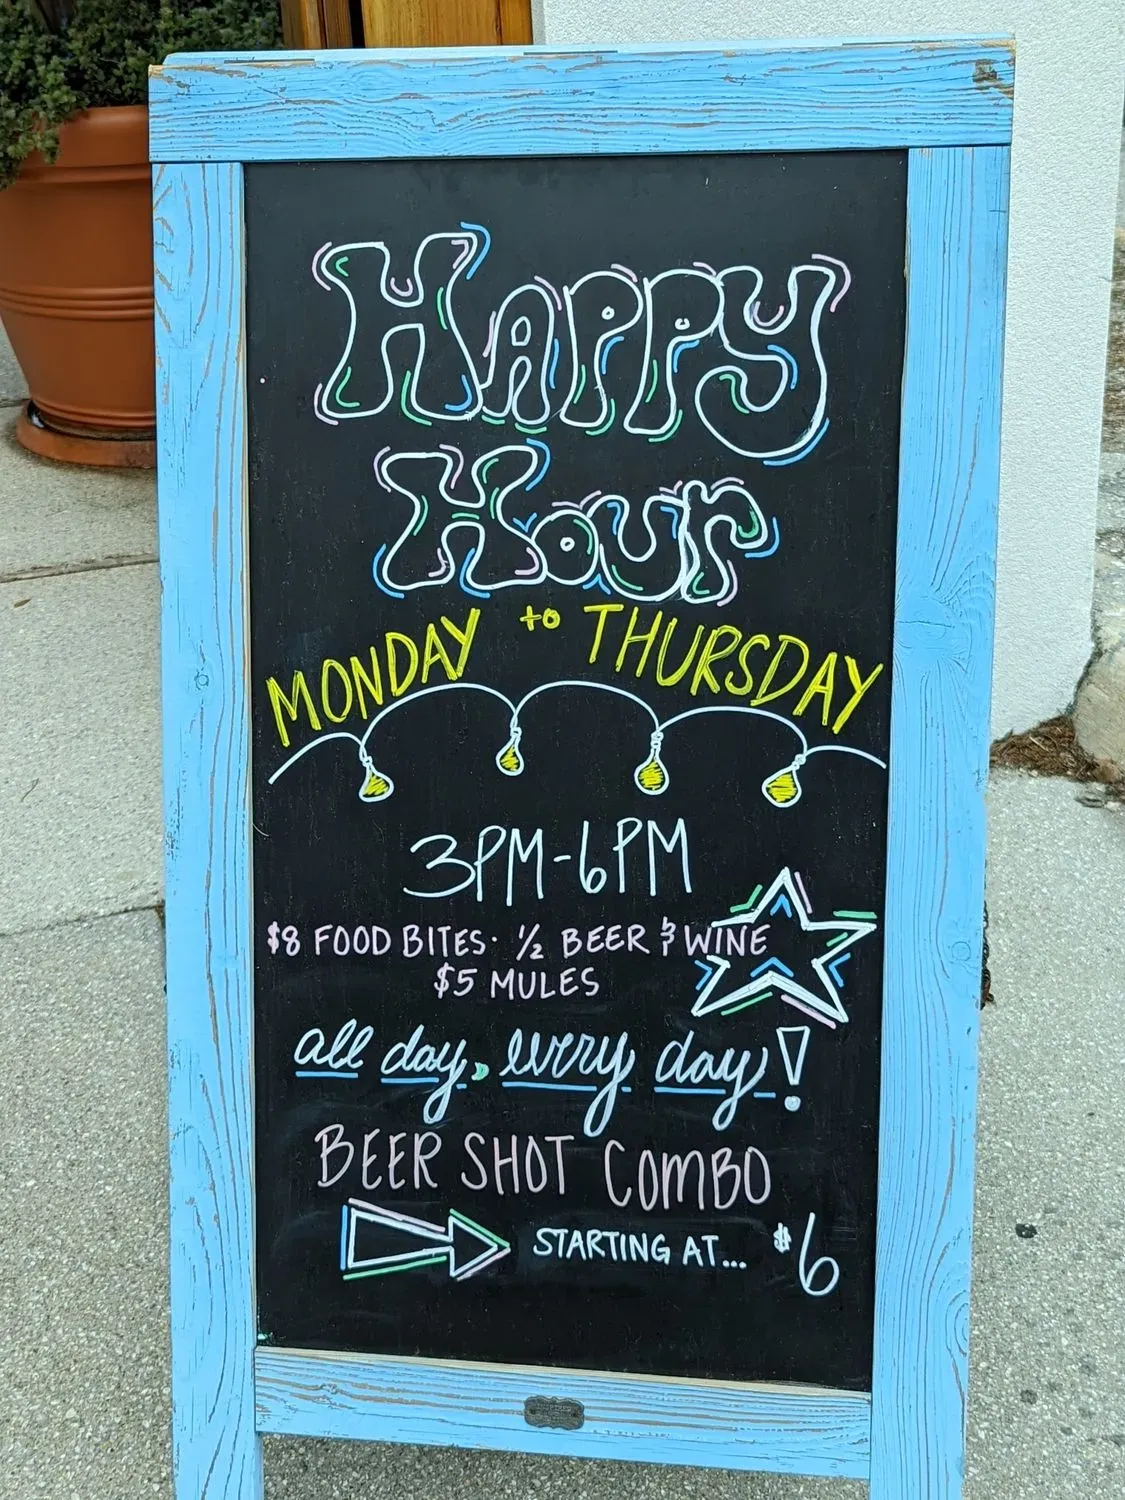 HAPPY
HOUr
MONDAY to THURSDAY
3PM-6PM
$8 FOOD BITES · ½ BEER & WINE
$5 MULES
all day, every day!
BEER SHOT COMBO
STARTING AT... $6